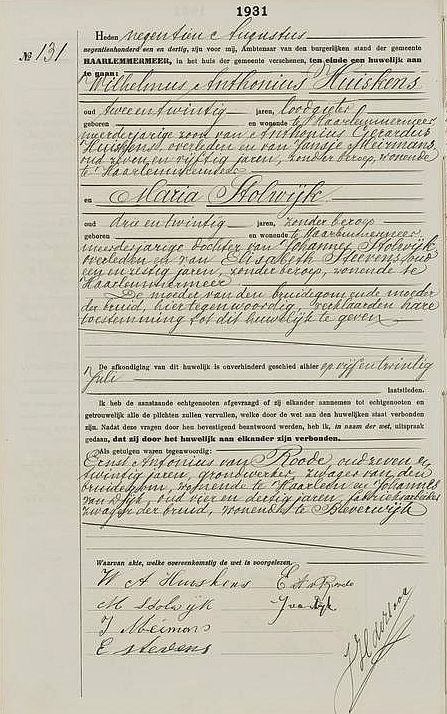 1931
No 131
Heden negentien Augustus
negentienhonderd een en dertig, zijn voor mij, Ambtenaar van den burgerlijken stand der gemeente
HAARLEMMERMEER, in het huis der gemeente verschenen, ten einde een huwelijk aan
te gaan:
Wilhelmus Anthonius Huiskens
oud twee en twintig jaren, loodgieter
geboren en wonende te Haarlemmermeer,
meerderjarige zoon van Anthonius Gerardus
Huiskens, overleden en van Jansje Meirmans,
oud zeven en vijftig jaren, zonder beroep, wonende
te Haarlemmermeer
en Maria Stolwijk
oud drie en twintig jaren, zonder beroep
geboren en wonende te Haarlemmermeer
meerderjarige dochter van Johannes Stolwijk
overleden en van Elisabeth Steevens, oud
een en zestig jaren, zonder beroep, wonende te
Haarlemmermeer
De moeder van den bruidegom en de moeder
der bruid, hier tegenwoordig, verklaarden hare
toestemming tot dit huwelijk te geven
De afkondiging van dit huwelijk is onverhinderd geschied alhier op vijf en twintig
Juli
laatstleden.
Ik heb de aanstaande echtgenooten afgevraagd of zij elkander aannemen tot echtgenooten en
getrouwelijk alle de plichten zullen vervullen, welke door de wet aan den huwelijken staat verbonden
zijn. Nadat deze vragen door hen bevestigend beantwoord werden, heb ik, in naam der wet, uitspraak
gedaan, dat zij door het huwelijk aan elkander zijn verbonden.
Als getuigen waren tegenwoordig:
Ernst Antonius van Roode, oud zeven en
twintig jaren, grondwerker, zwager van den
bruidegom, wonende te Haarlem en Johannes
van Dijk, oud vier en dertig jaren, fabrieksarbeider
zwager der bruid, wonende te Beverwijk
Waarvan akte, welke overeenkomstig de wet is voorgelezen.
W A Huiskens
M Stolwijk
J Meirmans
E Stevens
E A v Roode
J van Dijk